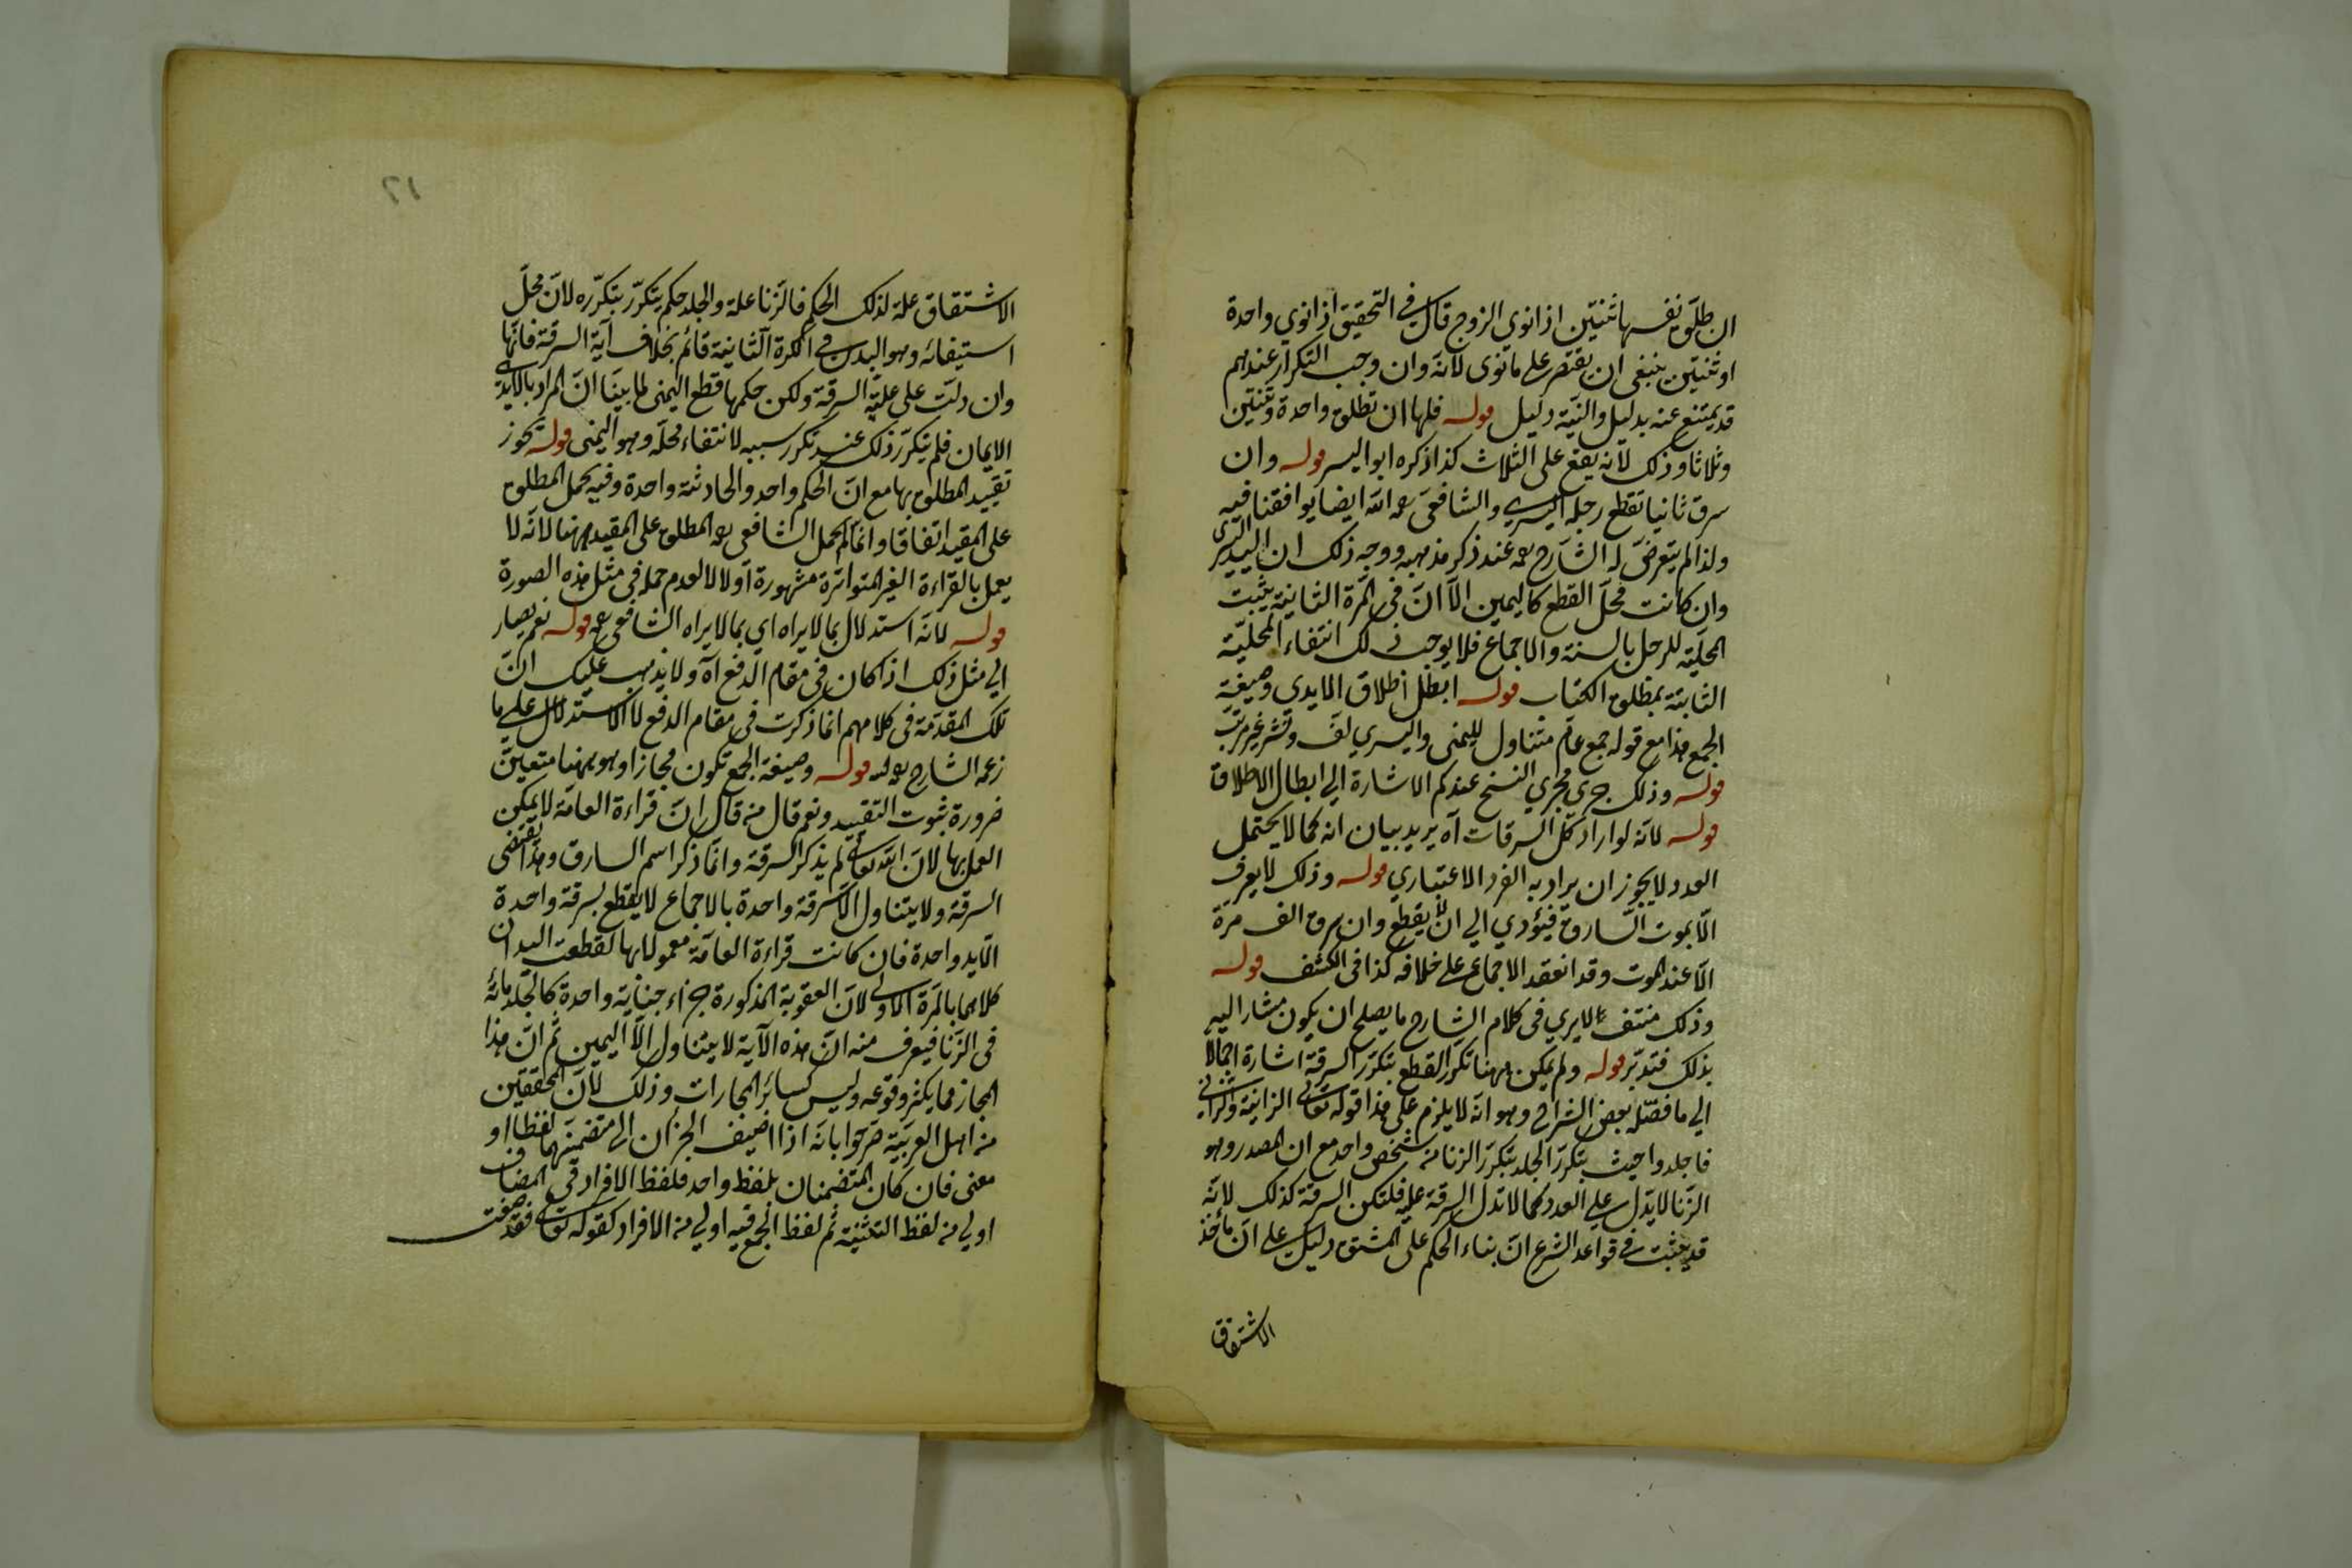 ان طلق نفسها ثنتين اذا نوى الزوج قال في التحقيق اذا نوى واحدة
او ثنتين ينبغى ان يقتصر على ما نوى لانه وان وجب التكرار عندهم
قد يمتنع عنه بدليل والنية دليل قوله فلها ان تطلق واحدة وثنتين
وثلاثا وذلك لانه يقع على الثلاث كذا ذكره ابو اليسر قوله وان
سرق ثانيا تقطع رجله اليسرى والشافعى رحمه الله ايضا يوافقنا فيه
ولذا لم يتعرض له الشارح رحمه عند ذكر مذهبه ووجه ذلك ان اليد اليسرى
وان كانت محل القطع كاليمين الا ان فى المرة الثانية يثبت
المحلية للرجل بالسنة والاجماع فلا يوجب ذلك انتفاء المحلية
الثابتة بمطلق الكتاب قوله ابطل اطلاق الايدي وصيغة
الجمع هذا مع قوله جمع عام متناول لليمنى واليسرى لف ونشر غير مرتب
قوله وذلك جرى مجرى النسخ عندكم الاشارة الى ابطال الاطلاق
قوله لانه لو اراد كل السرقات آه يريد بيان انه كما لا يحتمل
العدد لا يجوز ان يراد به الفرد الاعتباري قوله وذلك لا يعرف
الا بموت السارق فيؤدي الى ان لا يقطع وان سرق الف مرة
الا عند الموت وقد انعقد الاجماع على خلافه كذا فى الكشف قوله
وذلك منتف لا يرى فى كلام الشارح ما يصلح ان يكون مشارا اليه
بذلك فتدبر قوله ولم يمكن ههنا تكرر القطع بتكرر السرقة اشارة اجمالا
الى ما فصله بعض الشراح وهو انه لا يلزم على هذا قوله تعالى الزانية والزانى
فاجلدوا حيث يتكرر الجلد بتكرر الزنا من شخص واحد مع ان المصدر وهو
الزنا لا يدل على العدد كما لا تدل السرقة عليه فلتكن السرقة كذلك لانه
قد يثبت في قواعد الشرع ان بناء الحكم على المشتق دليل على ان مأخذ
الاشتقاق
١٦
الاشتقاق علة لذلك الحكم فالزنا علة والجلد حكم يتكرر بتكرره لان محل
استيفائه وهو البدن في المرة الثانية قائم بخلاف آية السرقة فانها
وان دلت على علية السرقة ولكن حكمها قطع اليمنى لما بينا ان المراد بالايدى
الايمان فلم يتكرر ذلك عند تكرر سببه لانتفاء محله وهو اليمنى قوله يجوز
تقييد المطلق بها مع ان الحكم واحد والحادثة واحدة وفيه يحمل المطلق
على المقيد اتفاقا وانما لم يحمل الشافعى رحمه المطلق على المقيد ههنا لانه لا
يعمل بالقراءة الغير المتواترة مشهورة اولا لا لعدم حمله فى مثل هذه الصورة
قوله لانه استدلال بما لا يراه اى بما لا يراه الشافعى رحمه قوله نعم يصار
الى مثل ذلك اذا كان فى مقام الدفع آه ولا يذهب عليك ان
تلك المقدمة فى كلامهم انما ذكرت فى مقام الدفع لا الاستدلال على ما
زعمه الشارح رحمه الله قوله وصيغة الجمع تكون مجازا وهو ههنا متعين
ضرورة ثبوت التقييد ونعم قال من قال ان قراءة العامة لا يمكن
العمل بها لان الله تعالى لم يذكر السرقة وانما ذكر اسم السارق وهذا يقتضى
السرقة ولا يتناول الا سرقة واحدة بالاجماع لا يقطع بسرقة واحدة
الا يد واحدة فان كانت قراءة العامة معمولا بها لقطعت اليدان
كلاهما بالمرة الاولى لان العقوبة المذكورة جزاء جناية واحدة كالجلد مائة
فى الزنا فيعرف منه ان هذه الآية لا يتناول الا اليمين ثم ان هذا
المجاز مما يكثر وقوعه وليس كسائر المجازات وذلك لان المحققين
من اهل العربية صرحوا بانه اذا اضيف الجزان الى متضمنيهما لفظا او
معنى فان كان المتضمنان بلفظ واحد فلفظ الافراد في المضاف
اولى من لفظ التثنية ثم لفظ الجمع فيه اولى من الافراد كقوله تعالى فقد صغت